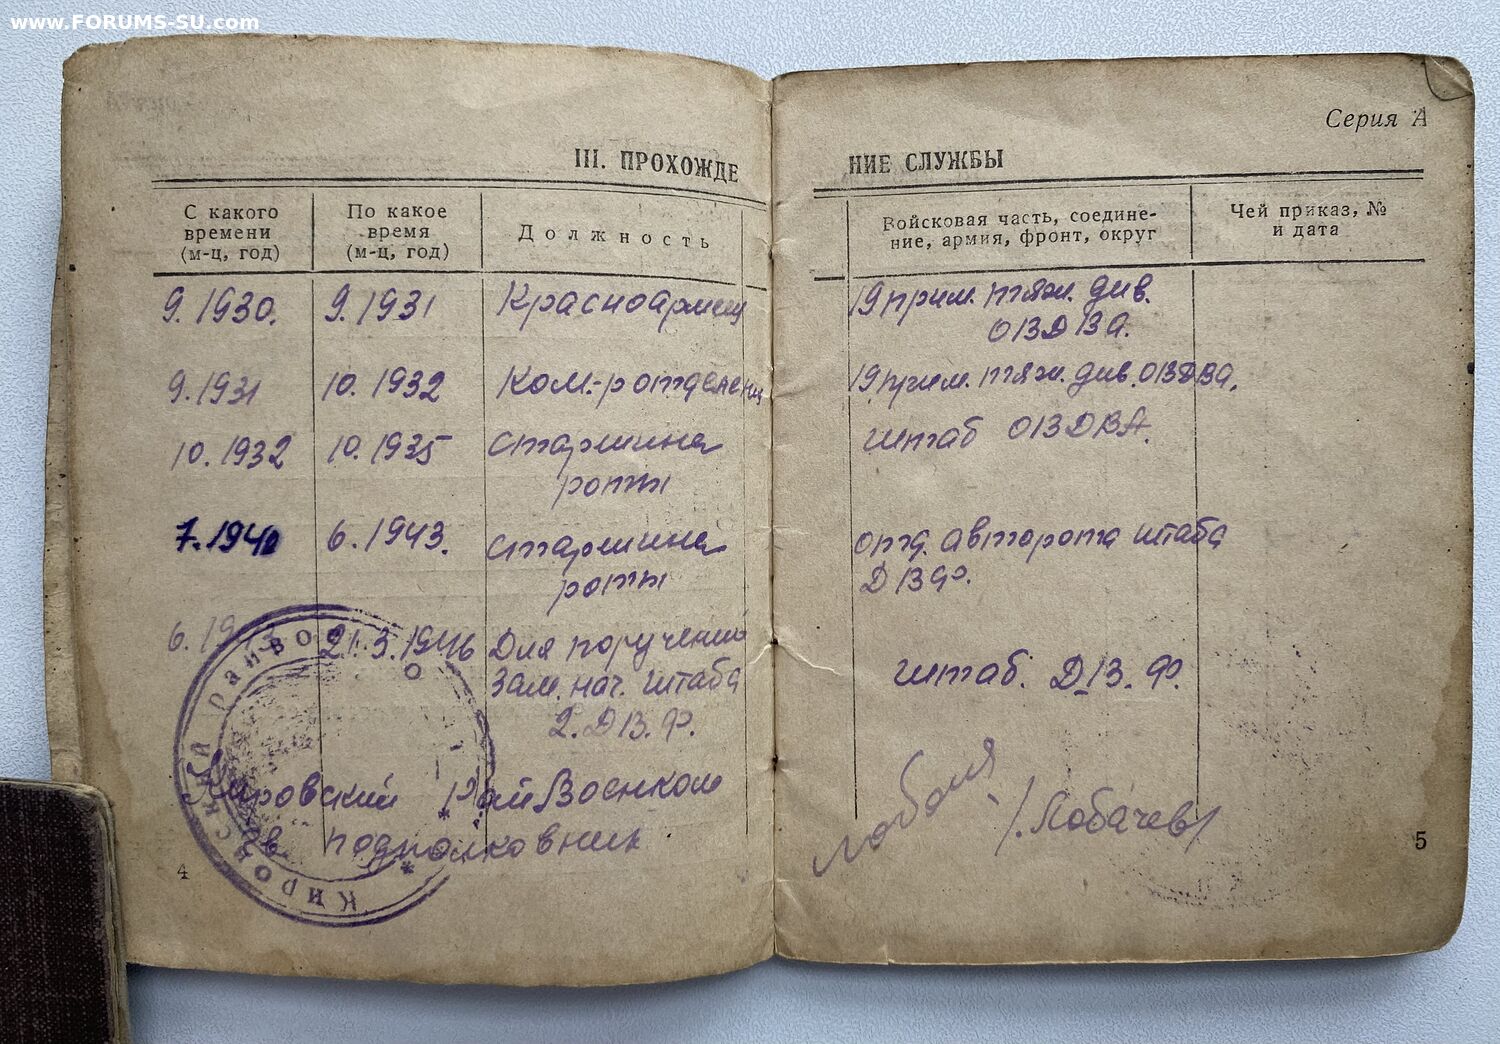 www.FORUMS-SU.com
Серия А
III. ПРОХОЖДЕ
НИЕ СЛУЖБЫ
С какого
времени
(м-ц, год)
По какое
время
(м-ц, год)
Должность
Войсковая часть, соедине-
ние, армия, фронт, округ
Чей приказ, №
и дата
9.1930. 9.1931 Красноармеец 19 прим. тяж. див.
ОКДВА.
9.1931 10.1932 Ком.-р отделен 19 прим. тяж. див. ОКДВА.
10.1932 10.1935 старшина штаб ОКДВА.
роты
7.1940 6.1943. старшина отд. авторота штаба
роты ДВФ.
6.19 21.3.1946 Для поручений
Зам. нач. штаба штаб. Д.В.Ф.
2.ДВ.Ф.
Кировский РайВоенком
подполковник /Лобачев/
Кировский райво
4
5